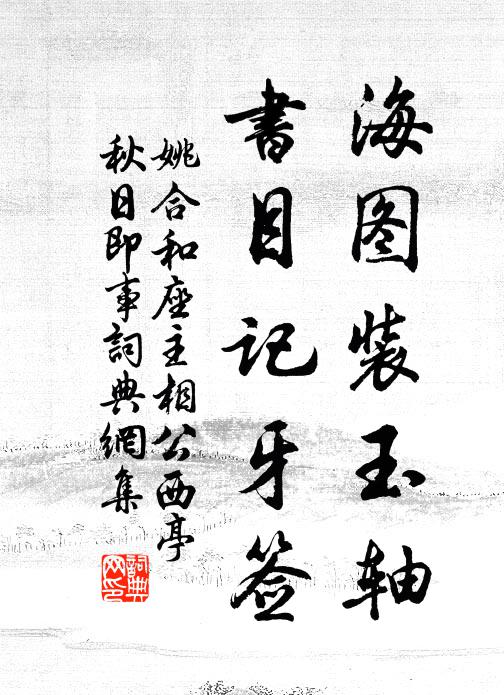 海图装玉轴
书目记牙签
姚合和座主相公西亭
秋日即事詞典網集
詞典
网印